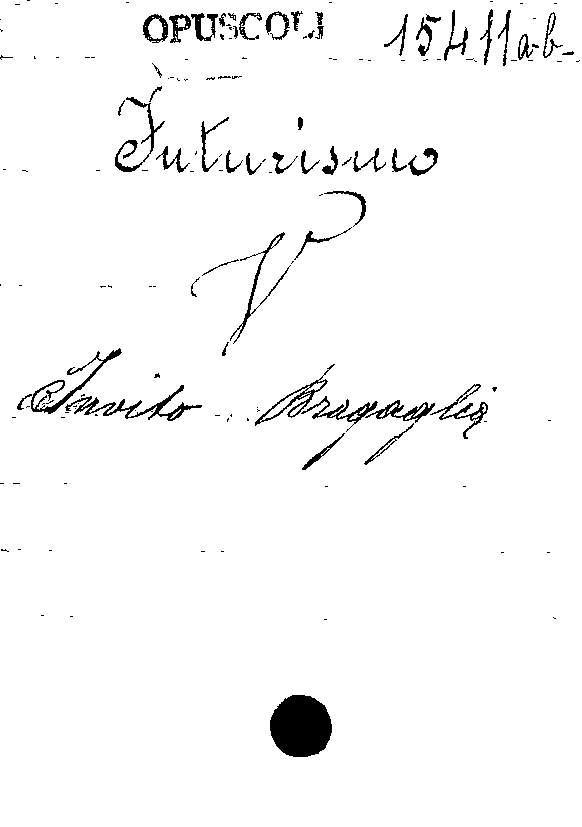 OPUSCOLI 15411a-b-
Futurismo
V
Invito Bragaglia